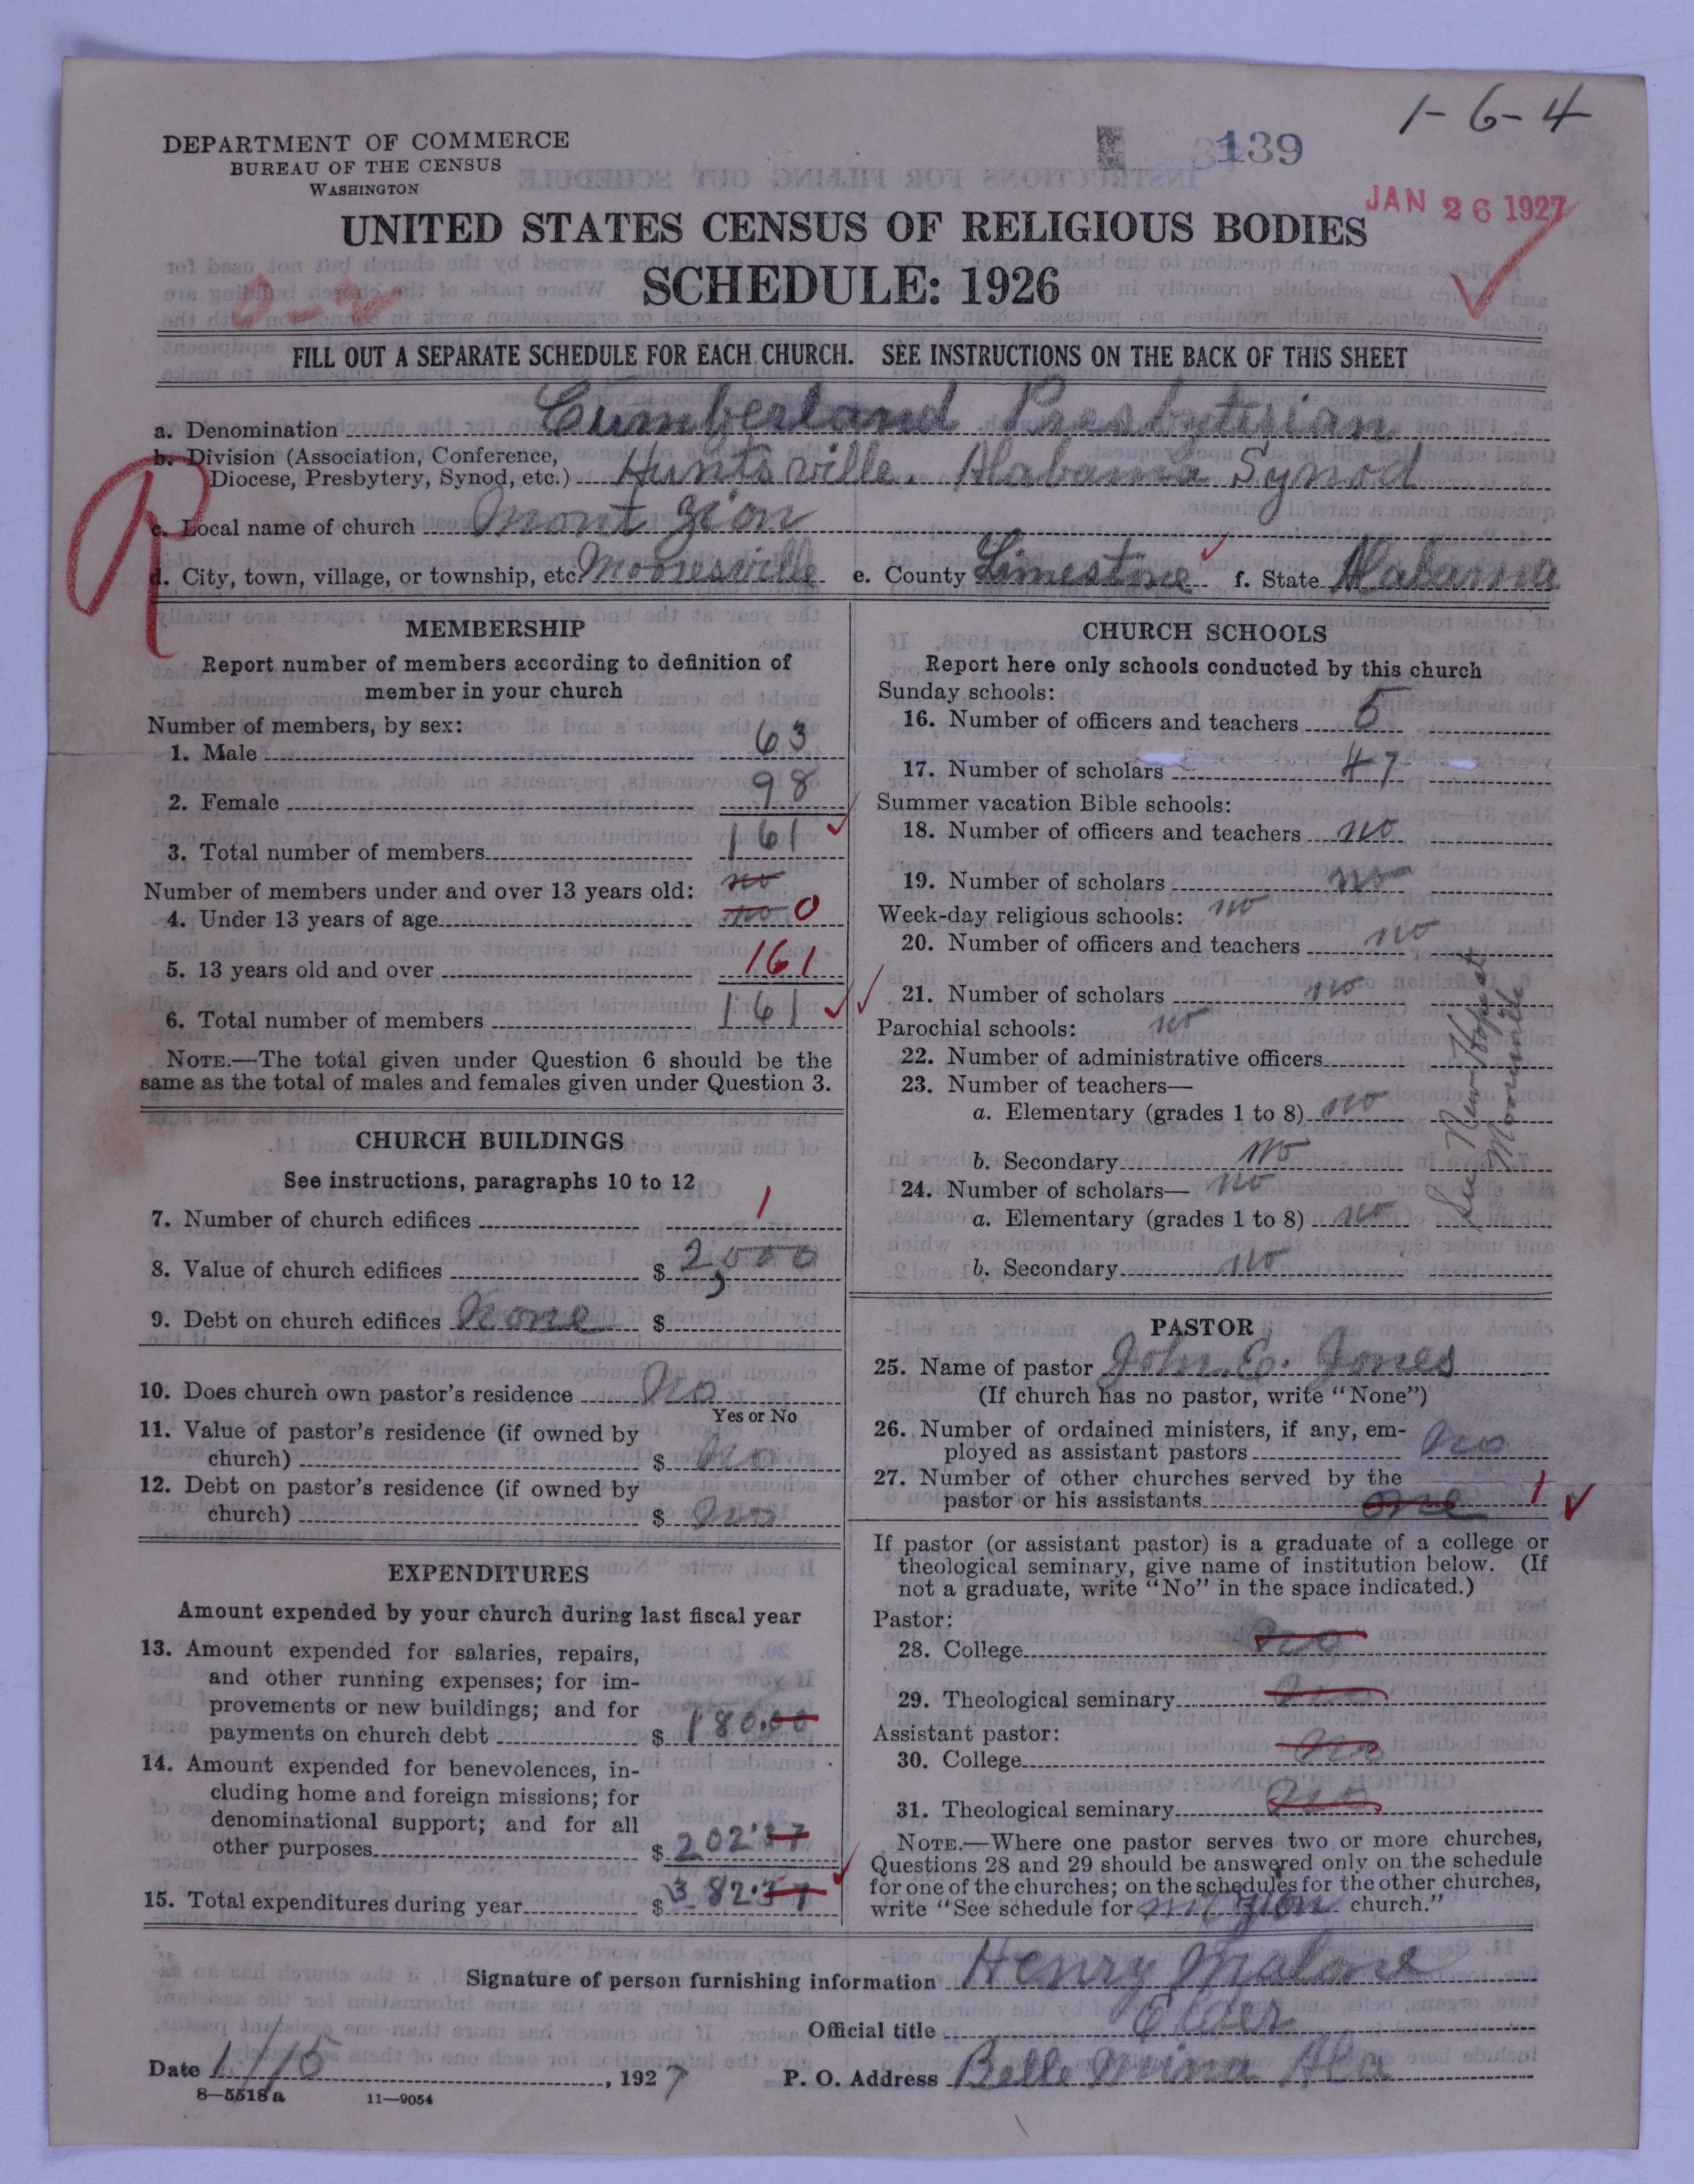 1-6-4
139
DEPARTMENT OF COMMERCE
BUREAU OF THE CENSUS
WASHINGTON
JAN 26 1927
UNITED STATES CENSUS OF RELIGIOUS BODIES
SCHEDULE: 1926
FILL OUT A SEPARATE SCHEDULE FOR EACH CHURCH. SEE INSTRUCTIONS ON THE BACK OF THIS SHEET
a. Denomination Cumberland Presbyterian
b. Division (Association, Conference,
Diocese, Presbytery, Synod, etc.) Huntsville. Alabama Synod
c. Local name of church Mont Zion
d. City, town, village, or township, etc. Mooresville e. County Limestone f. State Alabama
R
MEMBERSHIP
Report number of members according to definition of
member in your church
Number of members, by sex:
1. Male 63
2. Female 98
3. Total number of members 161
Number of members under and over 13 years old: no
4. Under 13 years of age no 0
5. 13 years old and over 161
6. Total number of members 161
NOTE.—The total given under Question 6 should be the
same as the total of males and females given under Question 3.
CHURCH BUILDINGS
See instructions, paragraphs 10 to 12
7. Number of church edifices 1
8. Value of church edifices $ 2,000
9. Debt on church edifices None $
10. Does church own pastor's residence No
Yes or No
11. Value of pastor's residence (if owned by
church) $ No
12. Debt on pastor's residence (if owned by
church) $ No
EXPENDITURES
Amount expended by your church during last fiscal year
13. Amount expended for salaries, repairs,
and other running expenses; for im-
provements or new buildings; and for
payments on church debt $ 180.00
14. Amount expended for benevolences, in-
cluding home and foreign missions; for
denominational support; and for all
other purposes $ 202.37
15. Total expenditures during year $ 382.37
CHURCH SCHOOLS
Report here only schools conducted by this church
Sunday schools:
16. Number of officers and teachers 5
17. Number of scholars 47
Summer vacation Bible schools:
18. Number of officers and teachers no
19. Number of scholars no
Week-day religious schools: no
20. Number of officers and teachers no
21. Number of scholars no
Parochial schools: no
22. Number of administrative officers
23. Number of teachers—
a. Elementary (grades 1 to 8) no
b. Secondary no
24. Number of scholars— no
a. Elementary (grades 1 to 8) no
b. Secondary no
See New Hope at
Mooresville
PASTOR
25. Name of pastor John. E. Jones
(If church has no pastor, write "None")
26. Number of ordained ministers, if any, em-
ployed as assistant pastors No
27. Number of other churches served by the
pastor or his assistants one 1
If pastor (or assistant pastor) is a graduate of a college or
theological seminary, give name of institution below. (If
not a graduate, write "No" in the space indicated.)
Pastor:
28. College No
29. Theological seminary No
Assistant pastor:
30. College No
31. Theological seminary No
NOTE.—Where one pastor serves two or more churches,
Questions 28 and 29 should be answered only on the schedule
for one of the churches; on the schedules for the other churches,
write "See schedule for mt Zion church."
Signature of person furnishing information Henry Malone
Official title Elder
Date 1/15, 1927 P. O. Address Belle Mina Ala
8—5518 a 11—9054